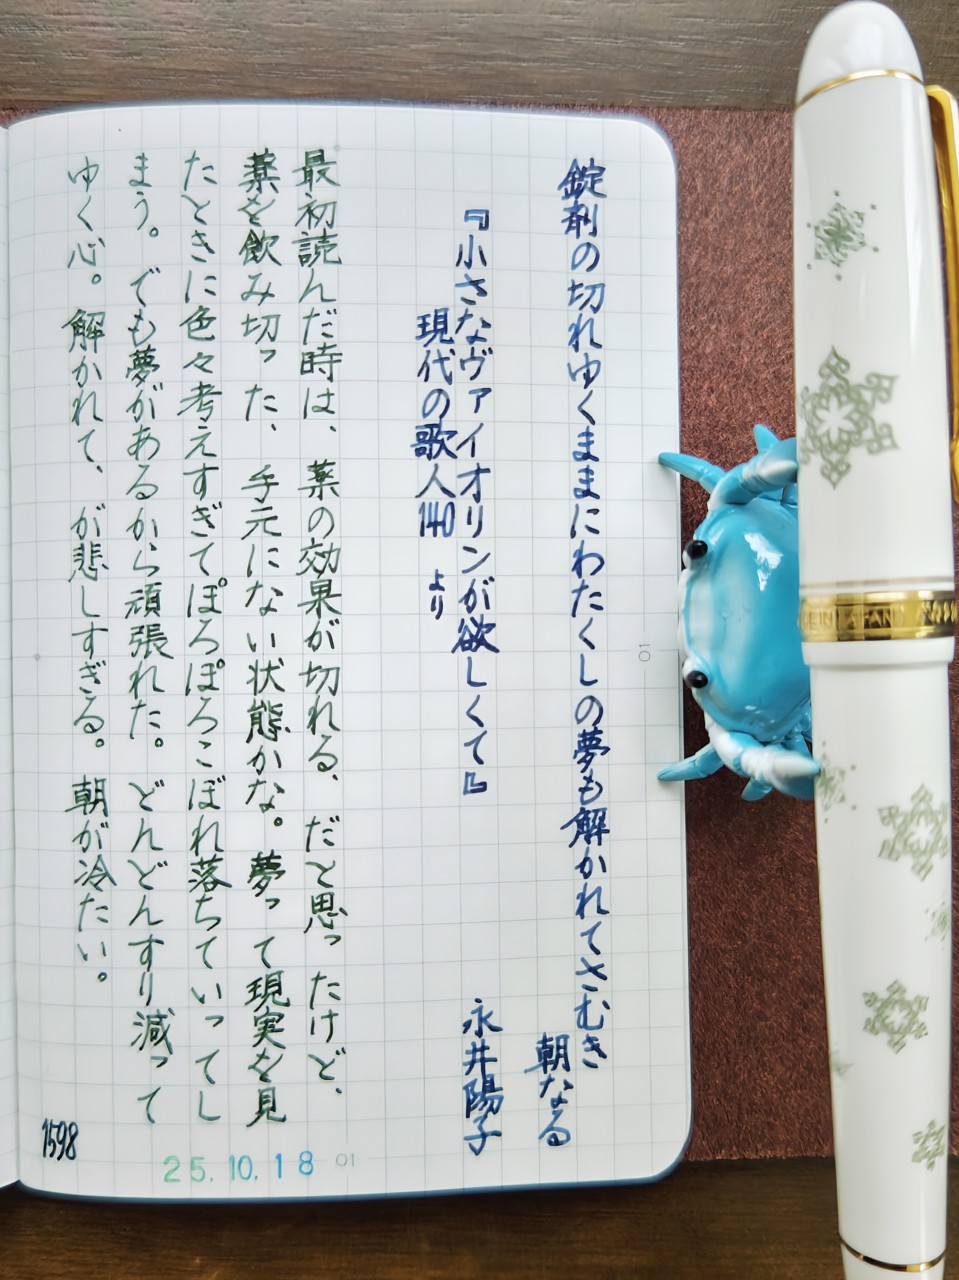 錠剤の切れゆくままにわたくしの夢も解かれてさむき
朝なる
『小さなヴァイオリンが欲しくて』
永井陽子
現代の歌人140 より
最初読んだ時は、薬の効果が切れる、だと思ったけど、
薬を飲み切った、手元にない状態かな。夢って現実を見
たときに色々考えすぎてぽろぽろこぼれ落ちていってし
まう。でも夢があるから頑張れた。どんどんすり減って
ゆく心。解かれて、が悲しすぎる。朝が冷たい。
1598
25.10.18
01
10